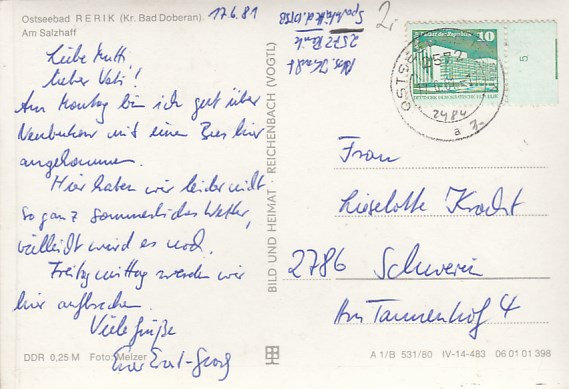 Ostseebad RERIK (Kr. Bad Doberan).
Am Salzhaff
17.6.81
Liebe Mutti,
lieber Vati!
Am Montag bin ich gut über
Neubukow mit einem Bus hier
angekommen.
Hier haben wir leider nicht
so ganz sommerliches Wetter,
vielleicht wird es noch.
Freitagmittag werden wir
hier aufbrechen.
Viele Grüße
Euer Ernst-Georg
DDR 0,25 M Foto: Melzer
BILD UND HEIMAT · REICHENBACH (VOGTL)
2572 Rerik
10
5
OSTSEEBAD
2572
Frau
Lieselotte Kracht
2786 Schwerin
Am Tannenhof 4
A 1/B 531/80 IV-14-483 06 01 01 398